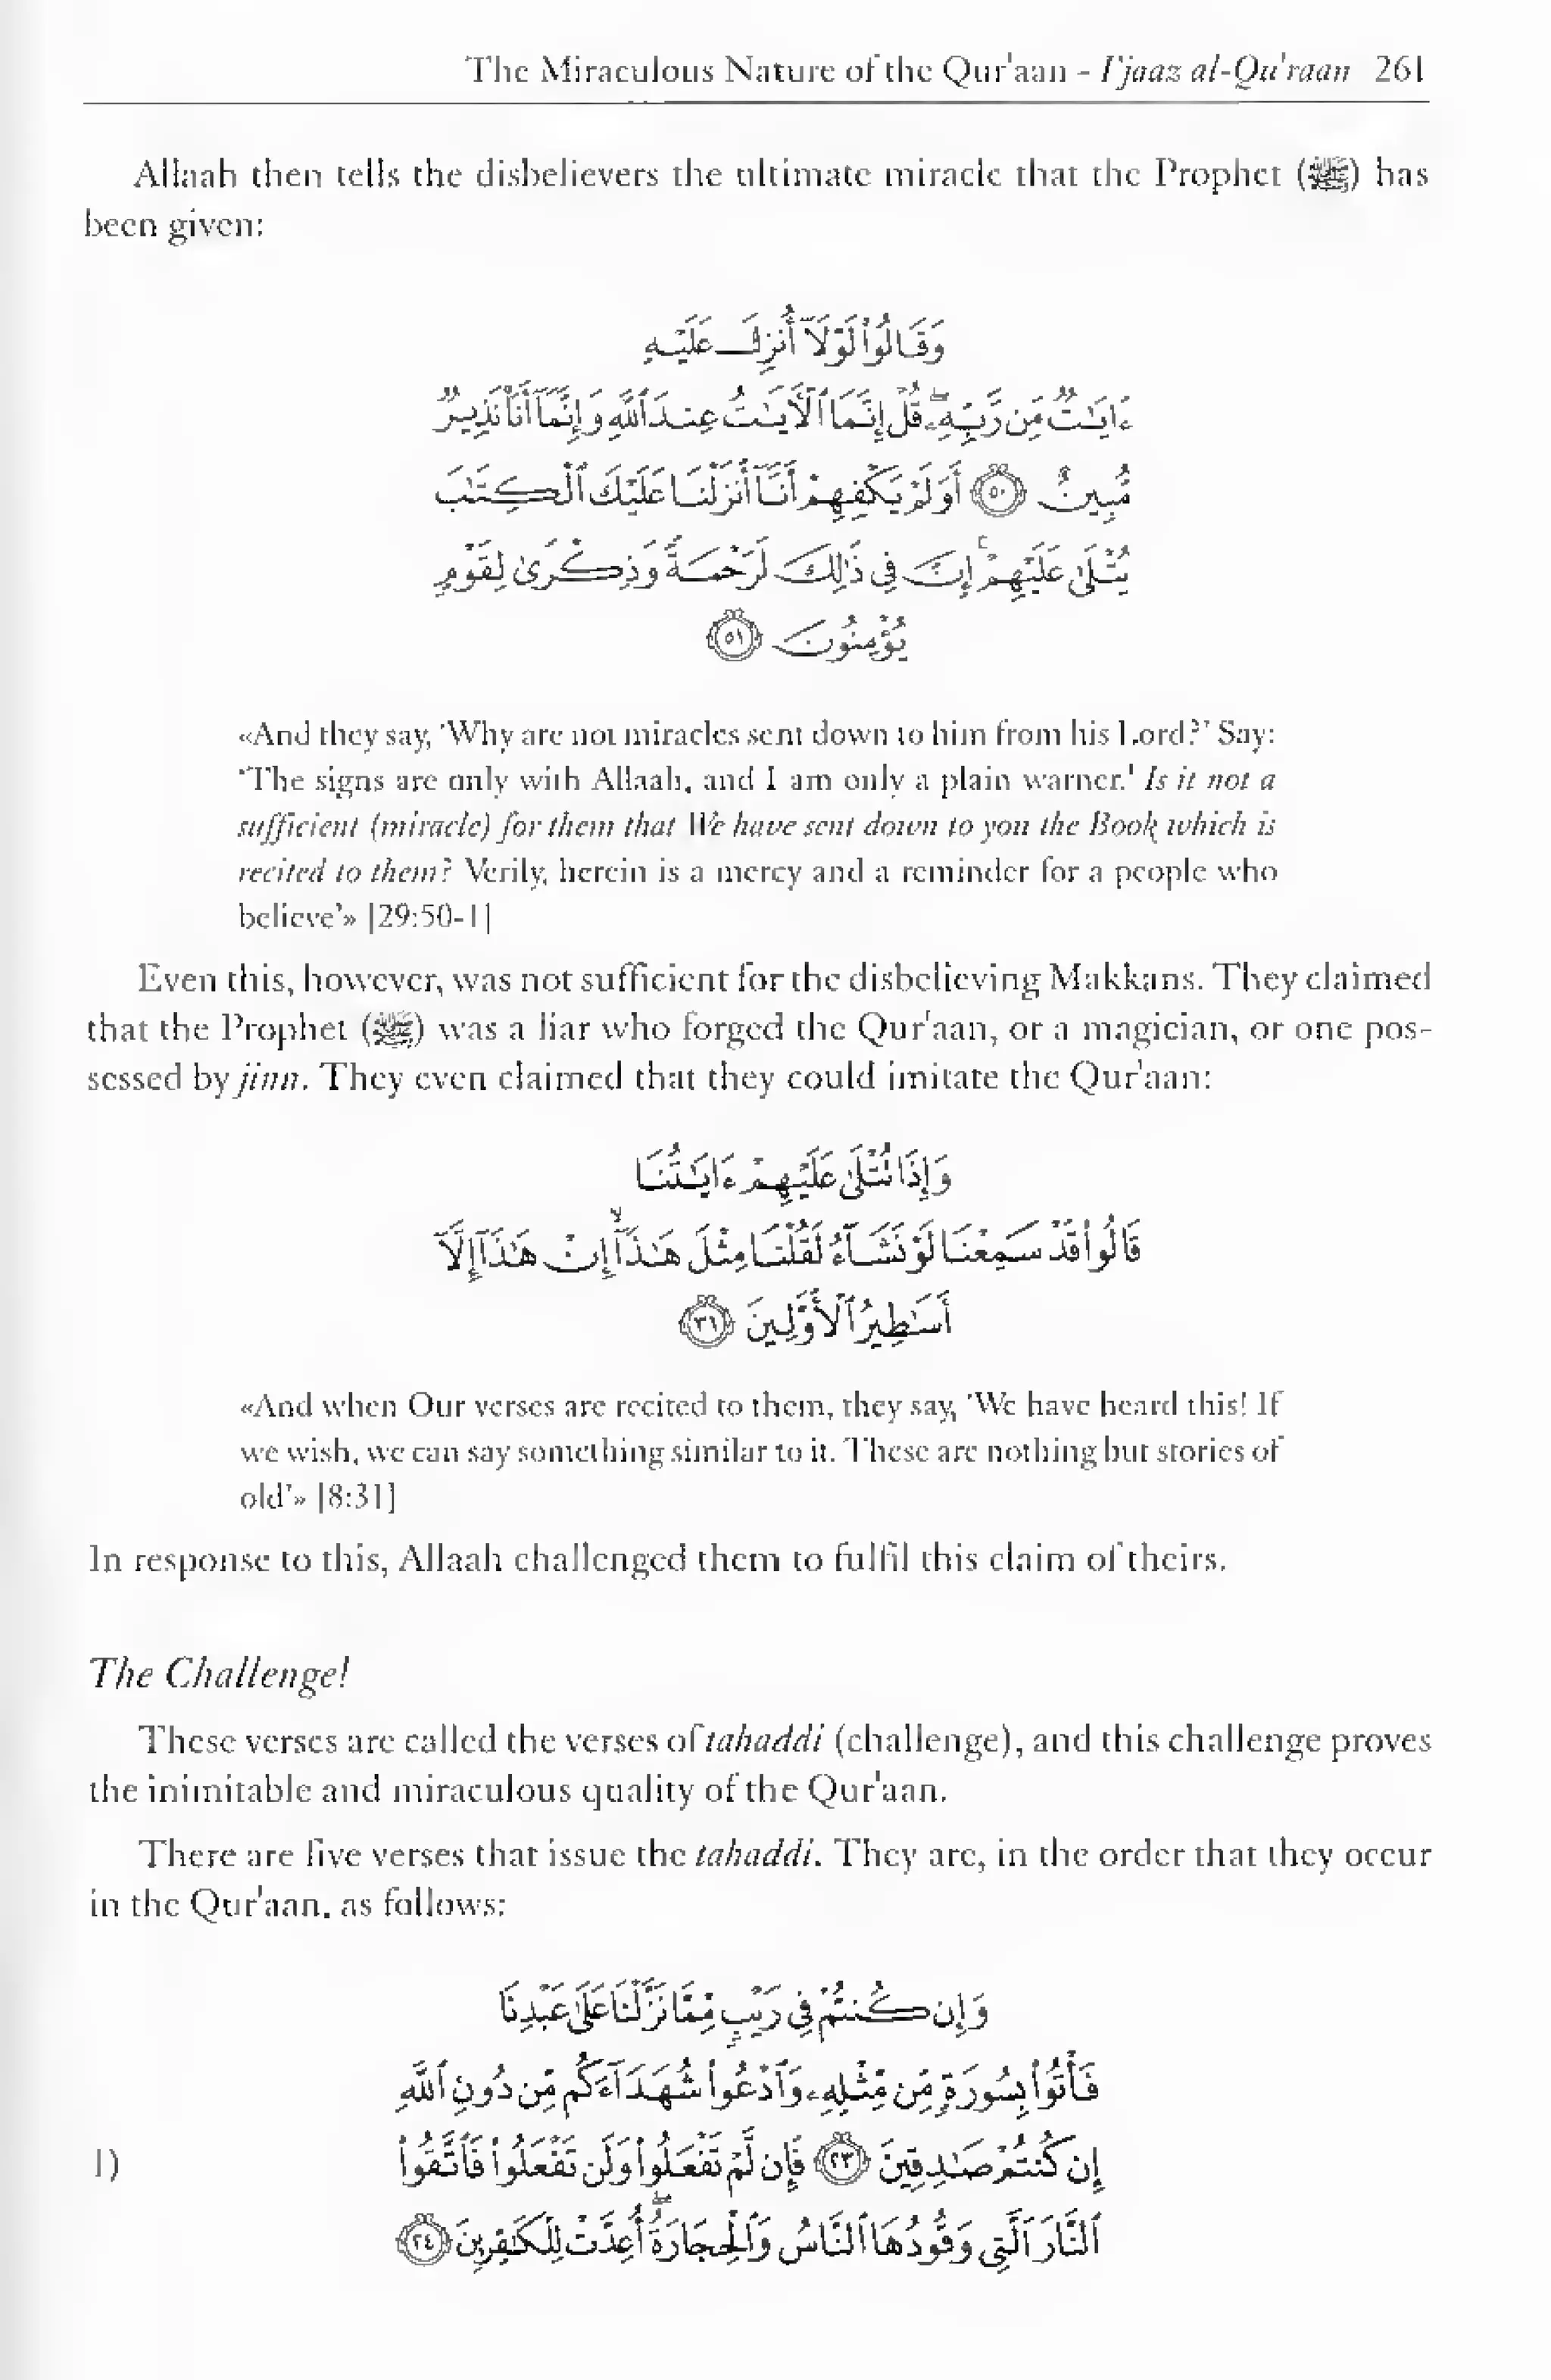 The Miraculous Nature of the Qur'aan - I'jaaz al-Qu'raan 261
Allaah then tells the disbelievers the ultimate miracle that the Prophet (ﷺ) has
been given:
وَقَالُوا۟ لَوْلَآ أُنزِلَ عَلَيْهِ
ءَايَـٰتٌ مِّن رَّبِّهِۦ ۖ قُلْ إِنَّمَا ٱلْـَٔايَـٰتُ عِندَ ٱللَّهِ وَإِنَّمَآ أَنَا۠ نَذِيرٌ
مُّبِينٌ ٥٠ أَوَلَمْ يَكْفِهِمْ أَنَّآ أَنزَلْنَا عَلَيْكَ ٱلْكِتَـٰبَ
يُتْلَىٰ عَلَيْهِمْ ۚ إِنَّ فِى ذَٰلِكَ لَرَحْمَةً وَذِكْرَىٰ لِقَوْمٍ
يُؤْمِنُونَ ٥١
«And they say, 'Why are not miracles sent down to him from his Lord?' Say:
'The signs are only with Allaah, and I am only a plain warner.' Is it not a
sufficient (miracle) for them that We have sent down to you the Book which is
recited to them? Verily, herein is a mercy and a reminder for a people who
believe'» [29:50-1]
Even this, however, was not sufficient for the disbelieving Makkans. They claimed
that the Prophet (ﷺ) was a liar who forged the Qur'aan, or a magician, or one pos-
sessed by jinn. They even claimed that they could imitate the Qur'aan:
وَإِذَا تُتْلَىٰ عَلَيْهِمْ ءَايَـٰتُنَا
قَالُوا۟ قَدْ سَمِعْنَا لَوْ نَشَآءُ لَقُلْنَا مِثْلَ هَـٰذَآ ۙ إِنْ هَـٰذَآ إِلَّآ
أَسَـٰطِيرُ ٱلْأَوَّلِينَ ٣١
«And when Our verses are recited to them, they say, 'We have heard this! If
we wish, we can say something similar to it. These are nothing but stories of
old'» [8:31]
In response to this, Allaah challenged them to fulfil this claim of theirs.
The Challenge!
These verses are called the verses of tahaddi (challenge), and this challenge proves
the inimitable and miraculous quality of the Qur'aan.
There are five verses that issue the tahaddi. They are, in the order that they occur
in the Qur'aan, as follows:
وَإِن كُنتُمْ فِى رَيْبٍ مِّمَّا نَزَّلْنَا عَلَىٰ عَبْدِنَا
فَأْتُوا۟ بِسُورَةٍ مِّن مِّثْلِهِۦ وَٱدْعُوا۟ شُهَدَآءَكُم مِّن دُونِ ٱللَّهِ
1) إِن كُنتُمْ صَـٰدِقِينَ ٢٣ فَإِن لَّمْ تَفْعَلُوا۟ وَلَن تَفْعَلُوا۟ فَٱتَّقُوا۟
ٱلنَّارَ ٱلَّتِى وَقُودُهَا ٱلنَّاسُ وَٱلْحِجَارَةُ ۖ أُعِدَّتْ لِلْكَـٰفِرِينَ ٢٤